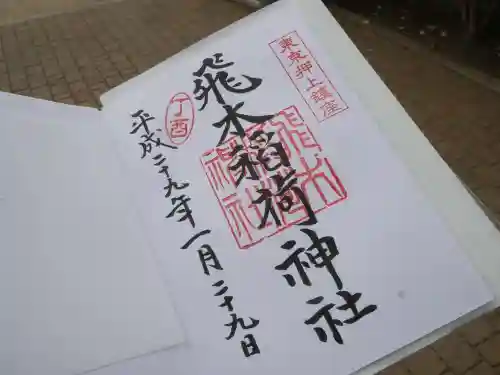 東京押上鎮座
飛木稲荷神社
飛木稲荷神社
丁酉
平成二十九年一月二十九日